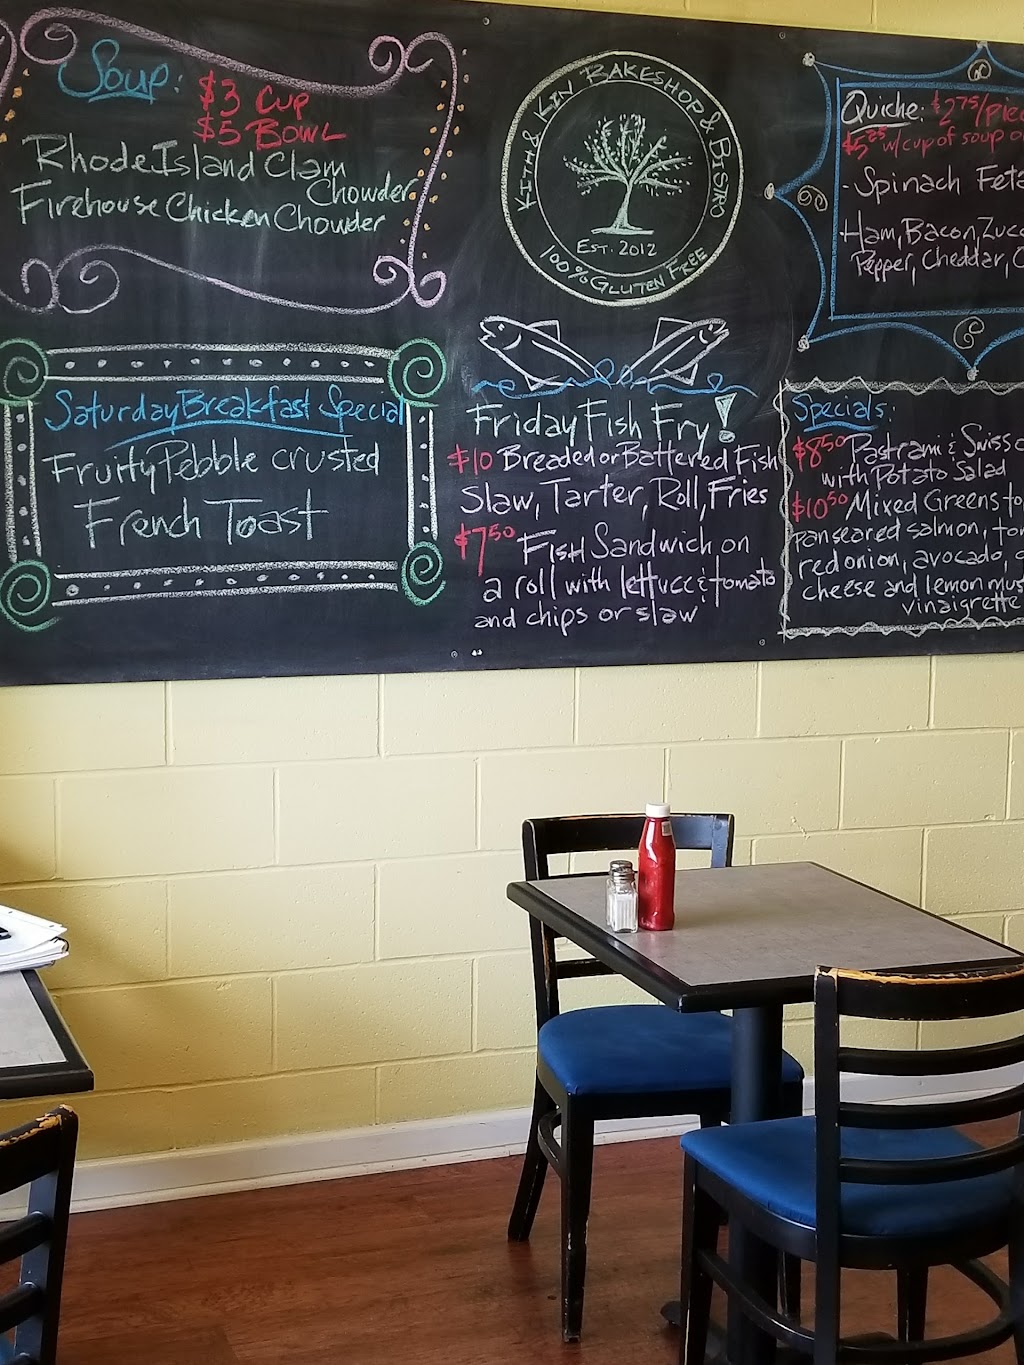 Soup:
$3 Cup
$5 Bowl
Rhode Island Clam
Chowder
Firehouse Chicken Chowder
Saturday Breakfast Special
Fruity Pebble crusted
French Toast
Kith & Kin Bakeshop & Bistro
Est. 2012
100% Gluten Free
Friday Fish Fry!
$10 Breaded or Battered Fish
Slaw, Tarter, Roll, Fries
$7.50 Fish Sandwich on
a roll with lettuce & tomato
and chips or slaw
Quiche: $2.75/piec
$5.25 w/cup of soup o
- Spinach Feta
Ham, Bacon, Zucc
Pepper, Cheddar,
Specials:
$8.50 Pastrami & Swiss
with Potato Salad
$10.50 Mixed Greens to
pan seared salmon, tom
red onion, avocado,
cheese and lemon mus
vinaigrette